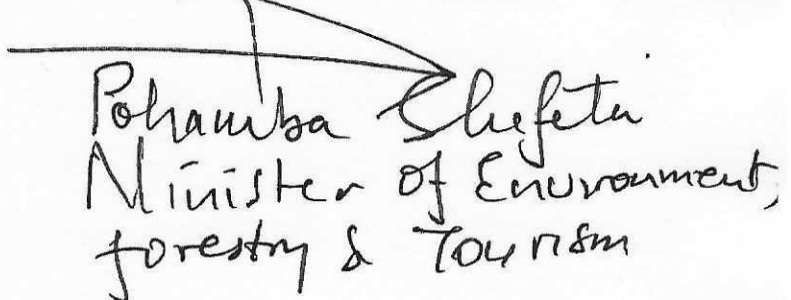 Pohamba Shifeta
Minister of Environment,
forestry & Tourism